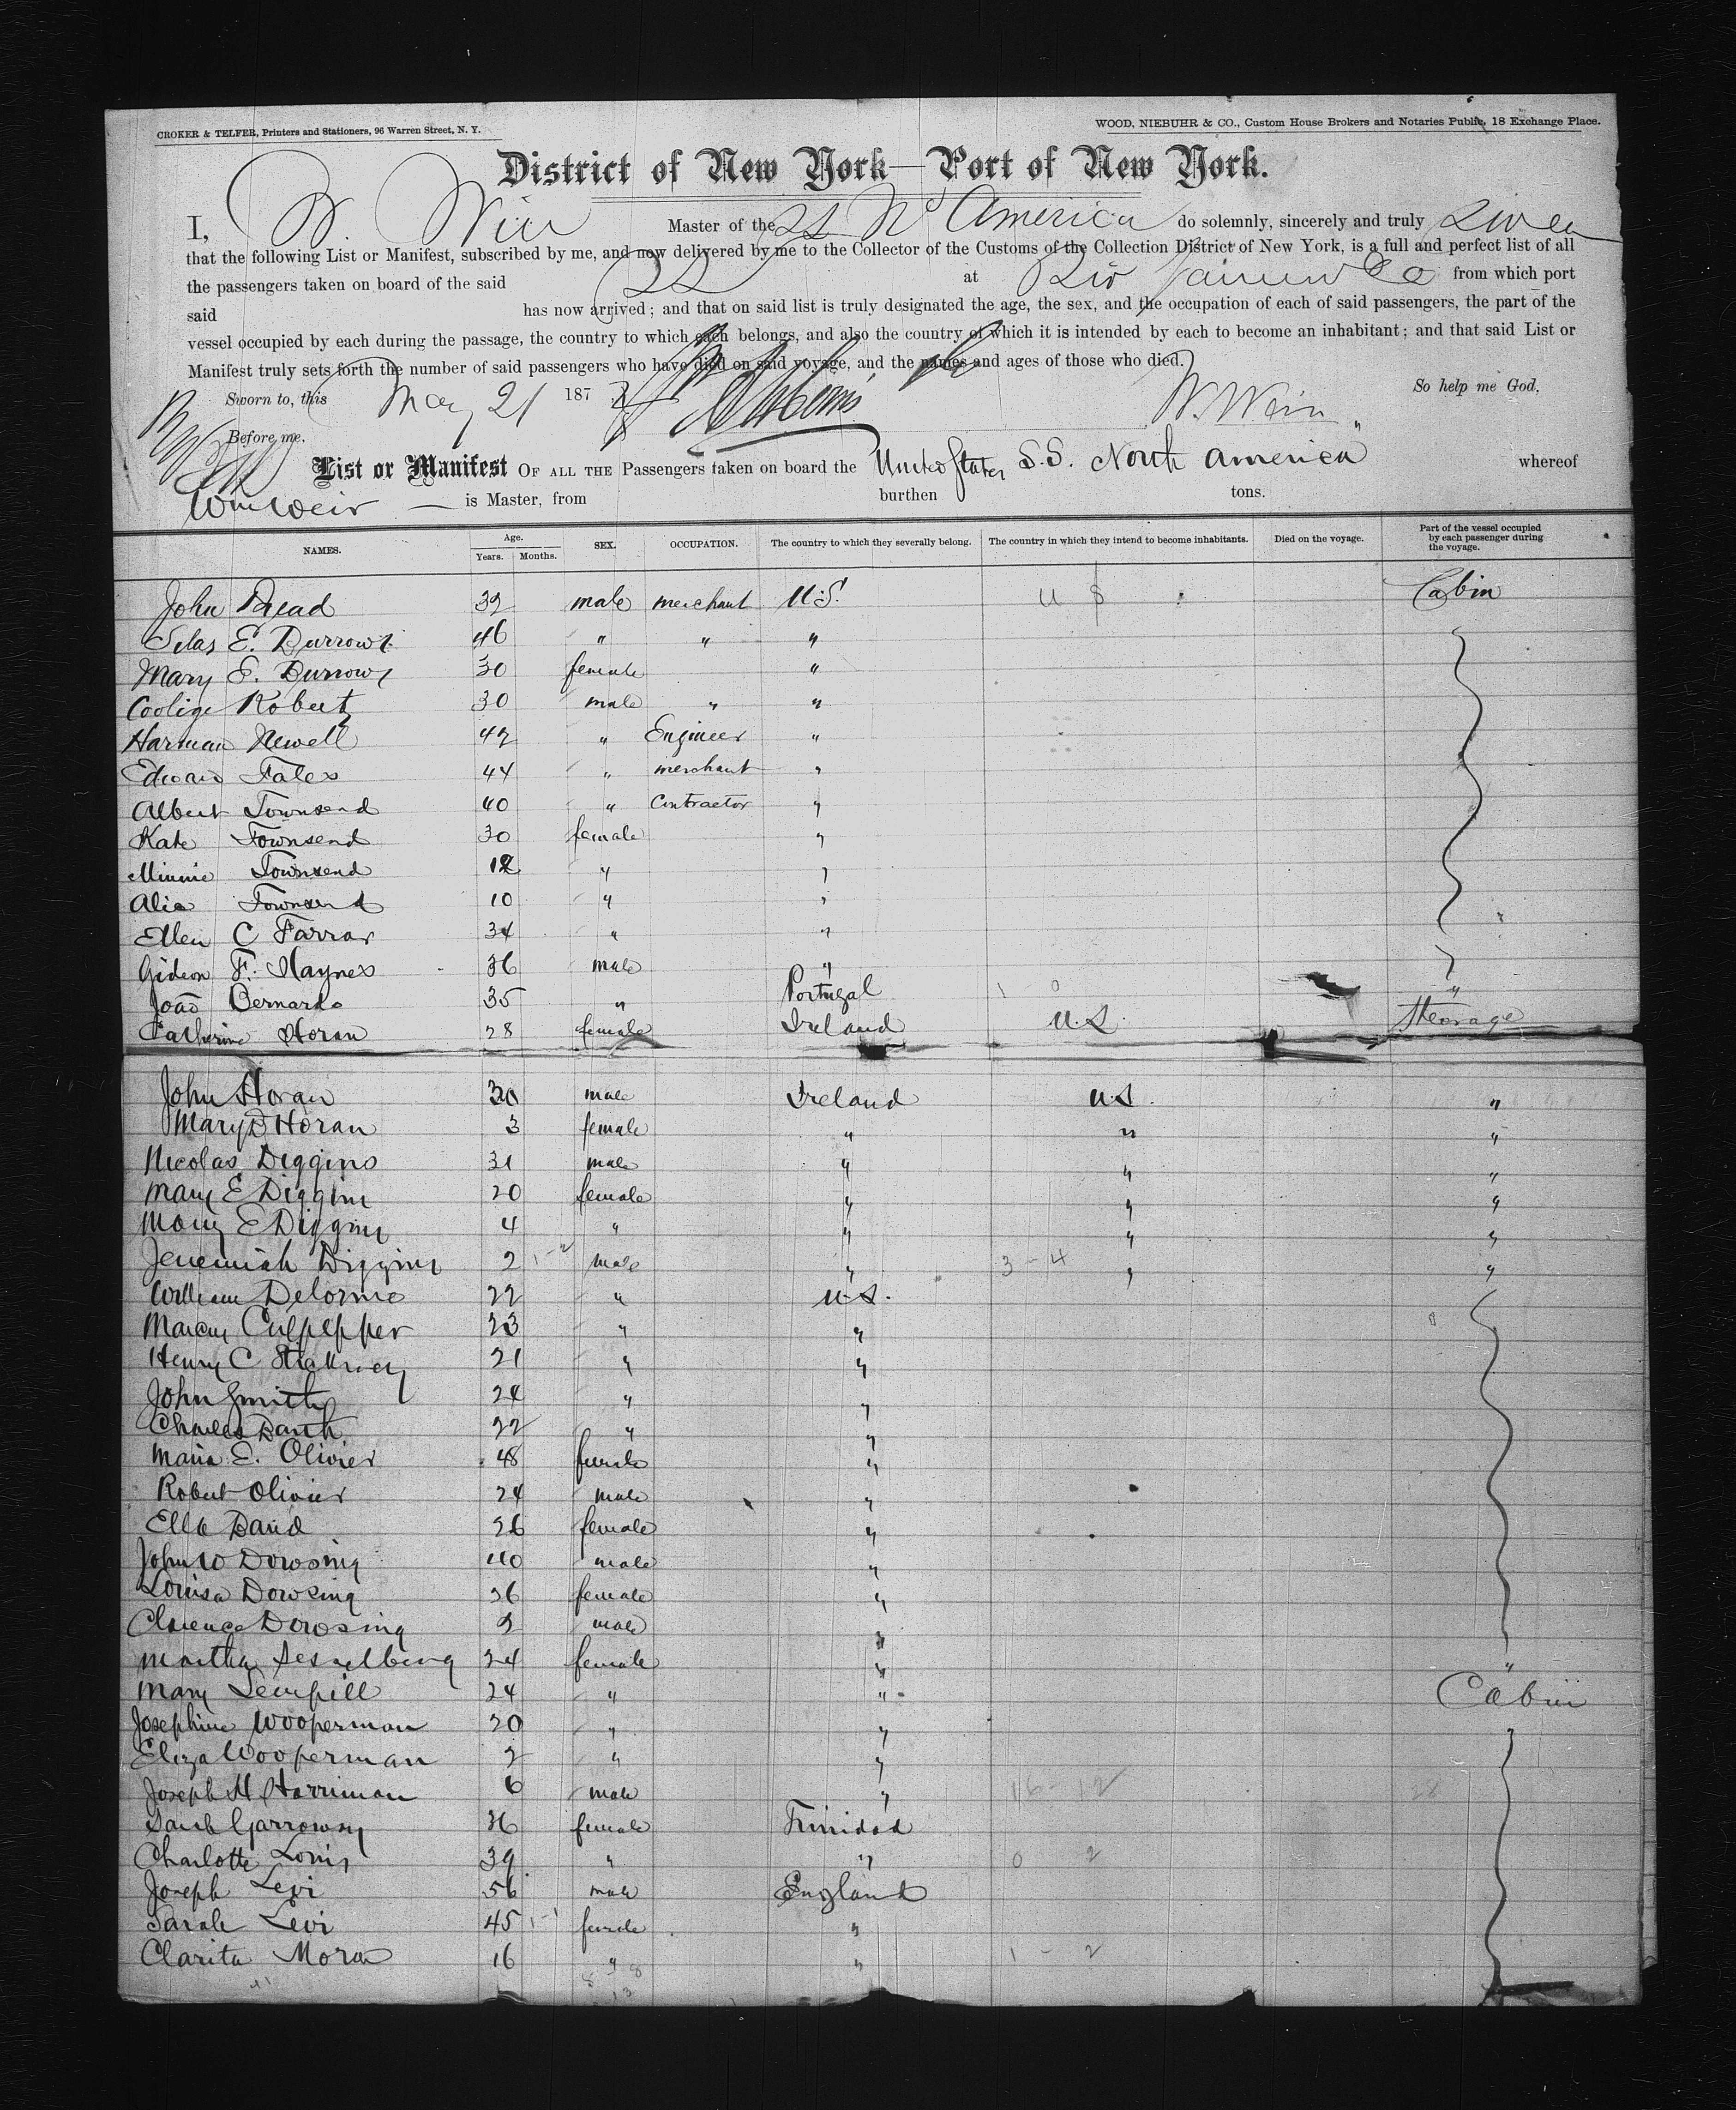 CROKER & TELFER, Printers and Stationers, 96 Warren Street, N. Y.
WOOD, NIEBUHR & CO., Custom House Brokers and Notaries Public, 18 Exchange Place.
District of New York—Port of New York.
I, W. Weir Master of the SS No America do solemnly, sincerely and truly Swear
that the following List or Manifest, subscribed by me, and now delivered by me to the Collector of the Customs of the Collection District of New York, is a full and perfect list of all
the passengers taken on board of the said SS at Rio Janeiro from which port
said has now arrived; and that on said list is truly designated the age, the sex, and the occupation of each of said passengers, the part of the
vessel occupied by each during the passage, the country to which each belongs, and also the country of which it is intended by each to become an inhabitant; and that said List or
Manifest truly sets forth the number of said passengers who have died on said voyage, and the names and ages of those who died.
So help me God,
Sworn to, this May 21 187
W. Weir
Before me,
List or Manifest OF ALL THE Passengers taken on board the United States S.S. North America whereof
Wm Weir — is Master, from burthen tons.
NAMES. Age. Years. Months. SEX. OCCUPATION. The country to which they severally belong. The country in which they intend to become inhabitants. Died on the voyage. Part of the vessel occupied by each passenger during the voyage.
John 32 male merchant U.S. U S Cabin
Silas E. Burrows 46 " " "
Mary E. Burrows 30 female "
Coolige Robert 30 male " "
Harman Newell 42 " Engineer "
Edward Fales 44 " merchant "
Albert Townsend 40 " Contractor "
Kate Townsend 30 female "
Minnie Townsend 12 " "
Alice Townsend 10 " "
Ellen C Farrar 34 " "
Gideon F. Haynes 36 male "
João Bernardo 35 " Portugal "
Catherine Horan 28 female Ireland U.S. Steerage
John Horan 30 male Ireland U.S. "
Mary D Horan 3 female " " "
Nicolas Diggins 31 male " " "
Mary E Diggins 20 female " " "
Mary E Diggins 4 " " " "
Jeremiah Diggins 2 1-2 male " 3-4 " "
William Delorme 22 " U.S.
Culpepper 23 " "
Henry C Stickney 21 " "
John Smith 24 " "
Charles 22 " "
Maria E. Olivier 48 female "
Robert Olivier 24 male "
Ella David 26 female "
John W Dowsing 40 male "
Louisa Dowsing 36 female "
Clarence Dowsing 2 male "
Martha 24 female " "
Mary Sempill 24 " " Cabin
Josephine Wooperman 20 " "
Eliza Wooperman 2 " "
Joseph H Harriman 6 male " 16-12 28
Sarah 36 female Trinidad
Charlotte Louis 39 " " 0 2
Joseph Levi 56 male England
Sarah Levi 45 1-1 female "
Clarita Mora 16 " " 1-2
8 8
13